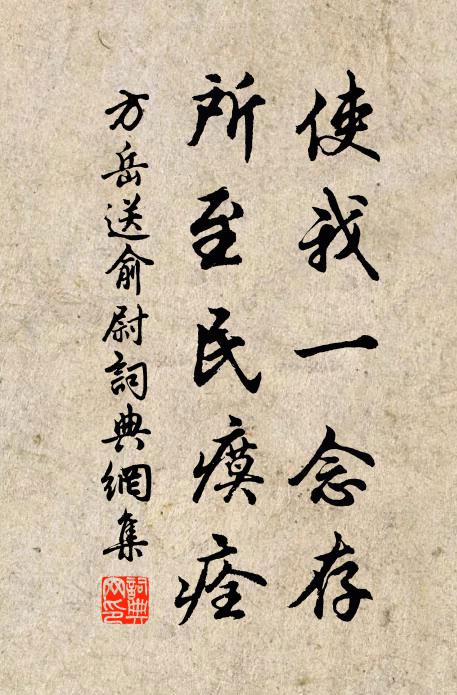 使我一念存
所至民瘼痊
方岳送俞尉詞典網集
詞典網印